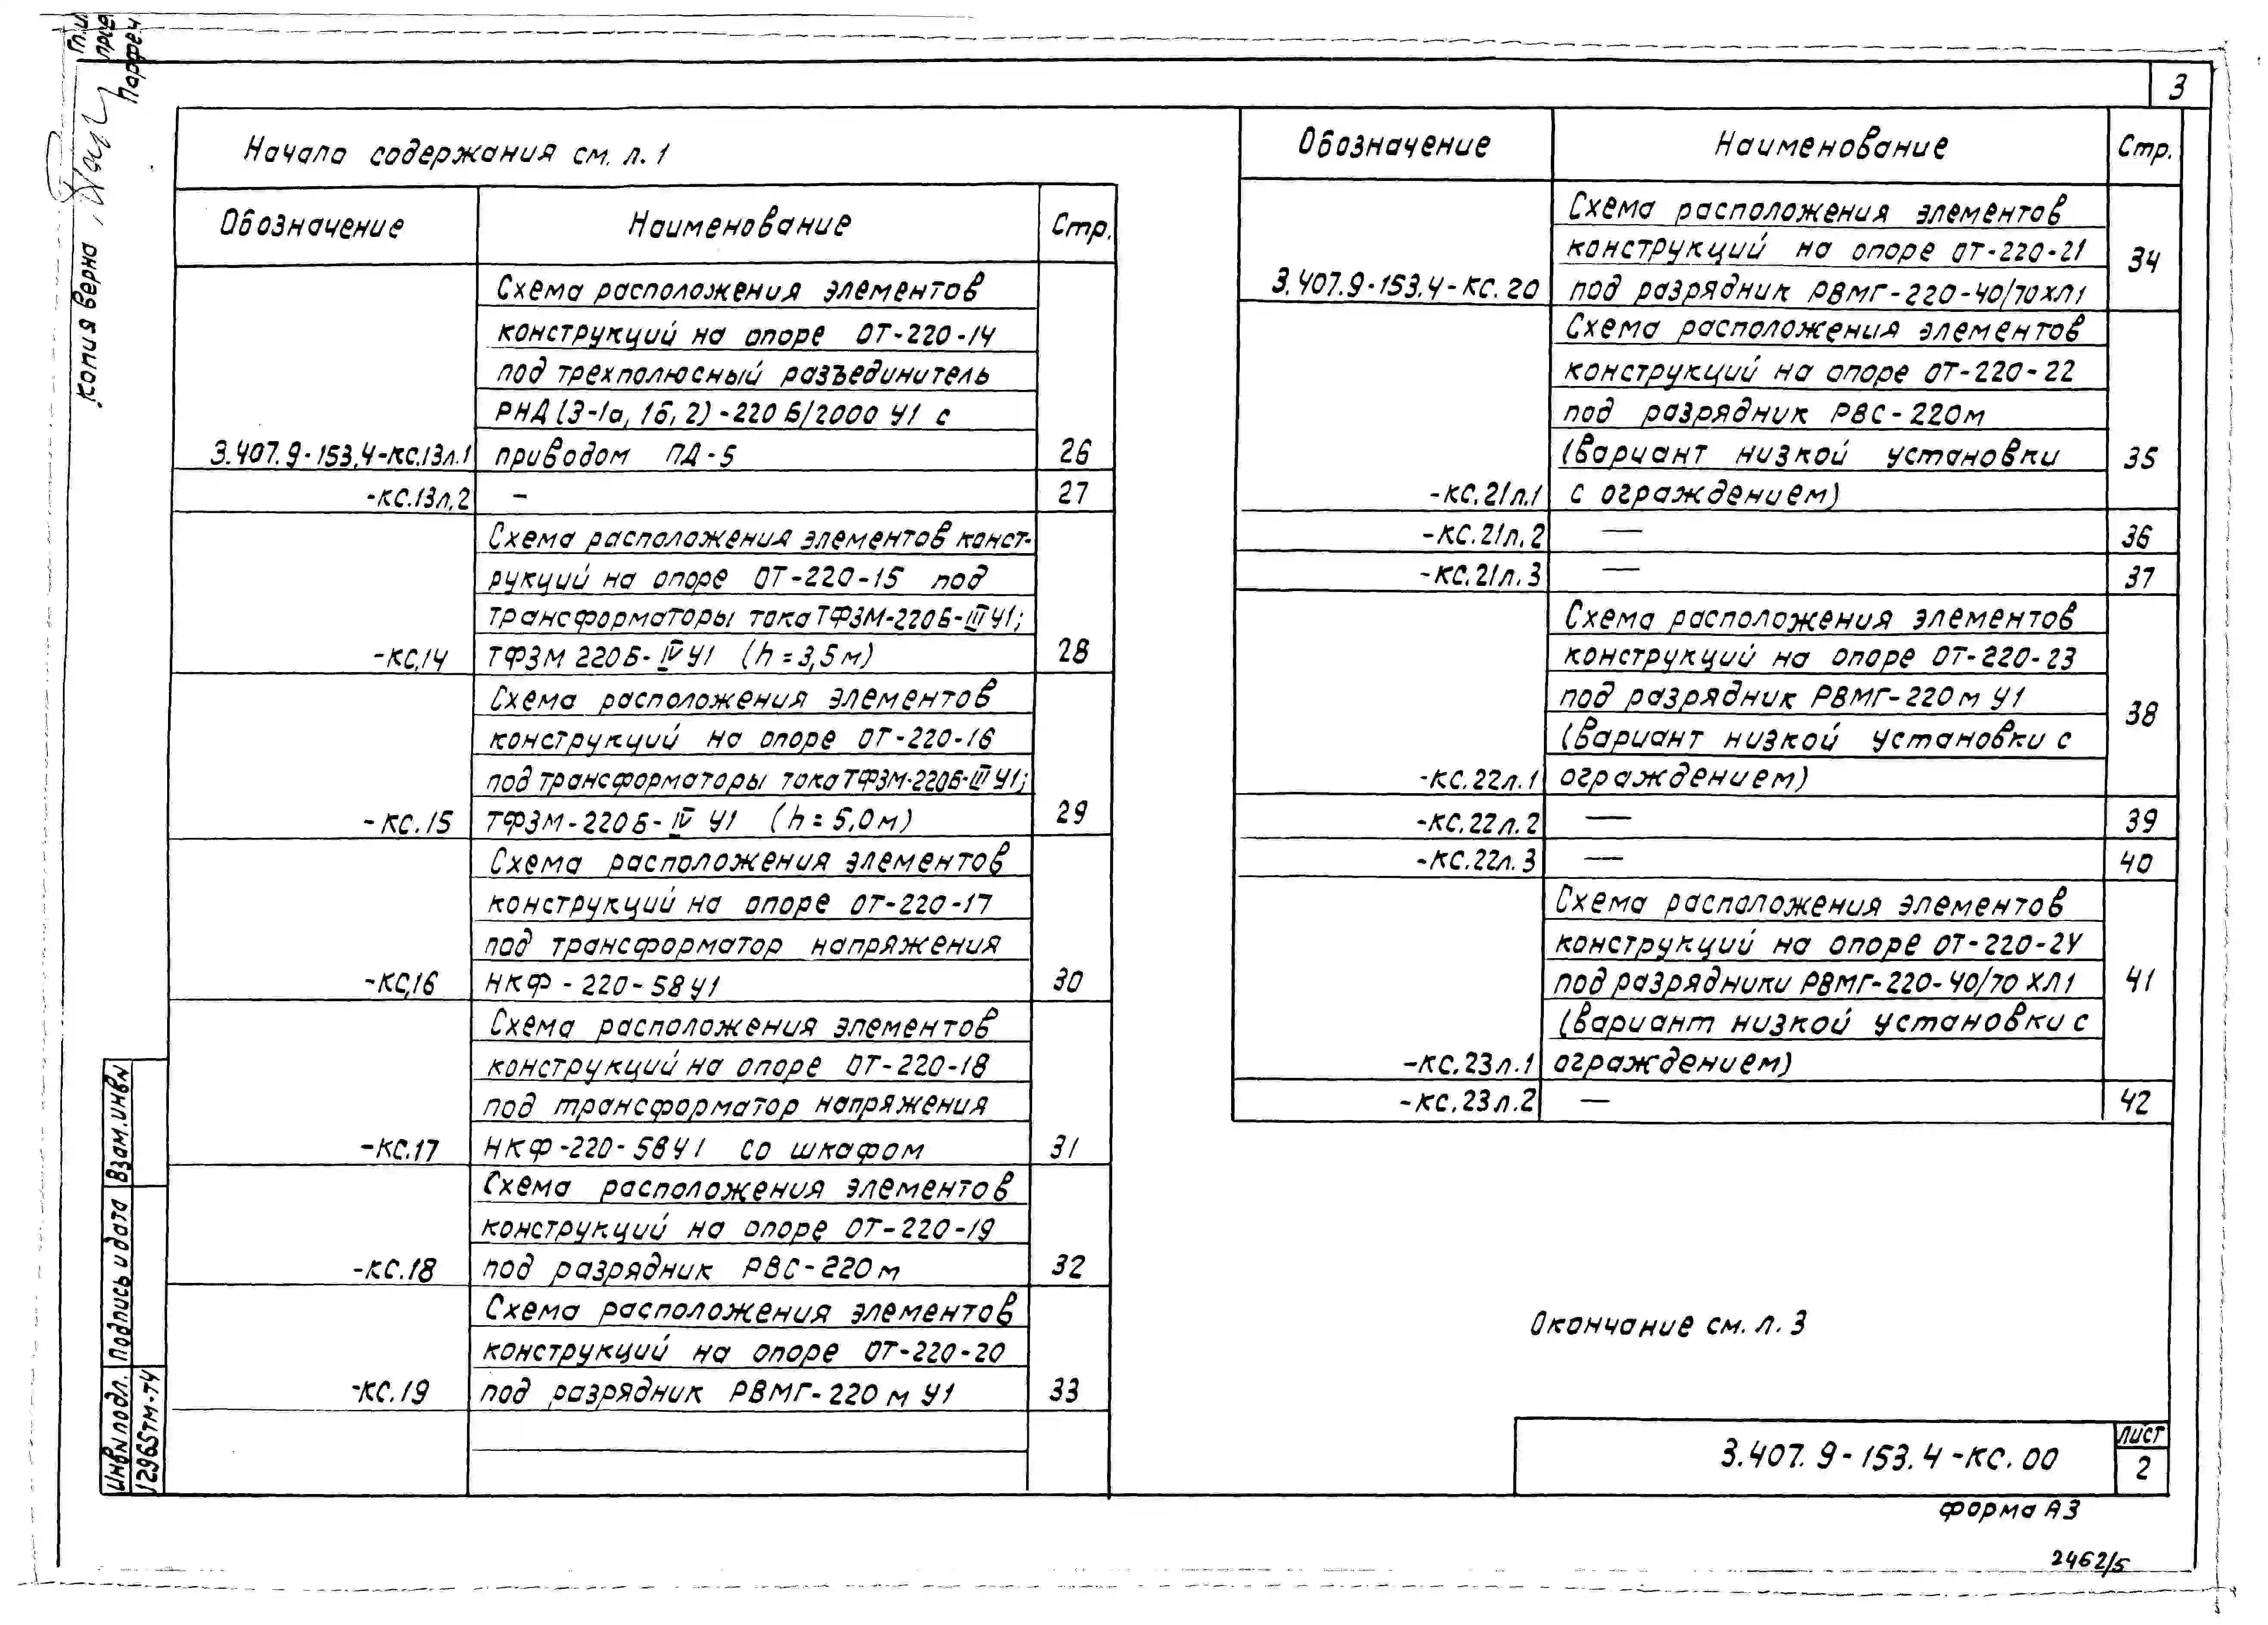 3
Начало содержания см. л. 1
Обозначение Наименование Стр.
Схема расположения элементов
конструкций на опоре ОТ-220-14
под трехполюсный разъединитель
РНД (3-1а, 1б, 2)-220 Б/2000 У1 с
3.407.9-153.4-КС.13л.1 приводом ПД-5 26
-КС.13л.2 - 27
Схема расположения элементов конст-
рукций на опоре ОТ-220-15 под
трансформаторы тока ТФЗМ-220Б-III У1;
-КС.14 ТФЗМ 220Б-IV У1 (h=3,5м) 28
Схема расположения элементов
конструкций на опоре ОТ-220-16
под трансформаторы тока ТФЗМ-220Б-III У1;
-КС.15 ТФЗМ-220Б-IV У1 (h=5,0м) 29
Схема расположения элементов
конструкций на опоре ОТ-220-17
под трансформатор напряжения
-КС.16 НКФ-220-58У1 30
Схема расположения элементов
конструкций на опоре ОТ-220-18
под трансформатор напряжения
-КС.17 НКФ-220-58У1 со шкафом 31
Схема расположения элементов
конструкций на опоре ОТ-220-19
-КС.18 под разрядник РВС-220м 32
Схема расположения элементов
конструкций на опоре ОТ-220-20
-КС.19 под разрядник РВМГ-220м У1 33
Обозначение Наименование Стр.
Схема расположения элементов
конструкций на опоре ОТ-220-21 34
3.407.9-153.4-КС.20 под разрядник РВМГ-220-40/70ХЛ1
Схема расположения элементов
конструкций на опоре ОТ-220-22
под разрядник РВС-220м
(вариант низкой установки 35
-КС.21л.1 с ограждением)
-КС.21л.2 — 36
-КС.21л.3 — 37
Схема расположения элементов
конструкций на опоре ОТ-220-23
под разрядник РВМГ-220м У1 38
(вариант низкой установки с
-КС.22л.1 ограждением)
-КС.22л.2 — 39
-КС.22л.3 — 40
Схема расположения элементов
конструкций на опоре ОТ-220-24
под разрядники РВМГ-220-40/70 ХЛ1 41
(вариант низкой установки с
-КС.23л.1 ограждением)
-КС.23л.2 — 42
Окончание см. л. 3
3.407.9-153.4-КС.00
Лист
2
форма А3
2462/5
Копия верна
Взам.инв№
Подпись и дата
Инв№ подл.
12965тм-т4